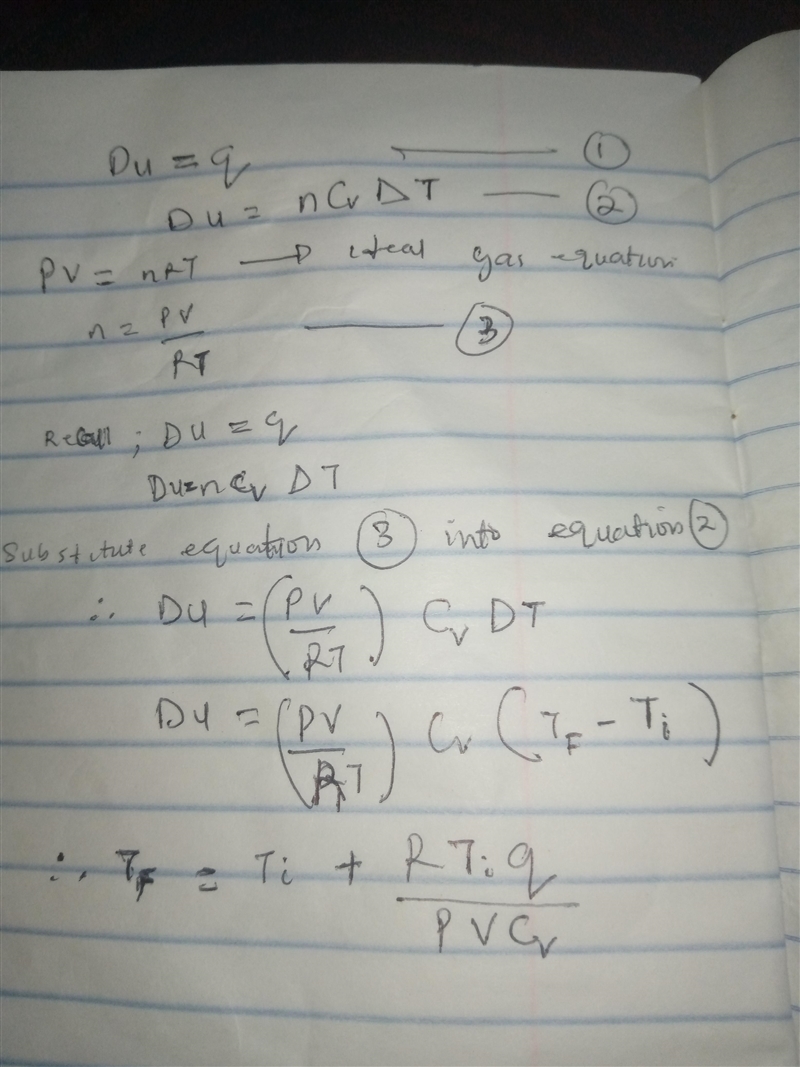 Du = q ——— ①
Du = nCv ΔT —— ②
PV = nRT → ideal gas equation
n = PV/RT ——— ③
Recall; Du = q
Du = nCv DT
Substitute equation ③ into equation ②
∴ Du = (PV/RT) Cv DT
Du = (PV/RT) Cv (TF - Ti)
∴ TF = Ti + RTiq/PVCv